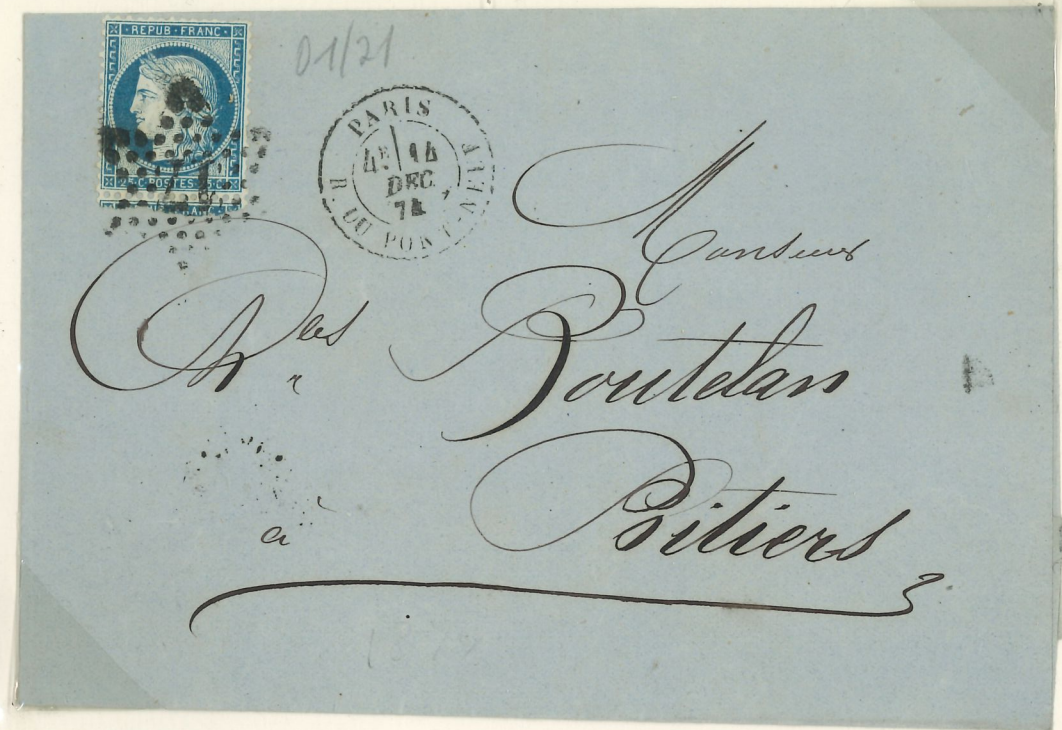 REPUB · FRANC ·
25 C · POSTES · 25 C
D1/21
PARIS
4E 14
DEC.
74
R. DU PONT-NEUF
Monsieur
Boutelan
à
Poitiers